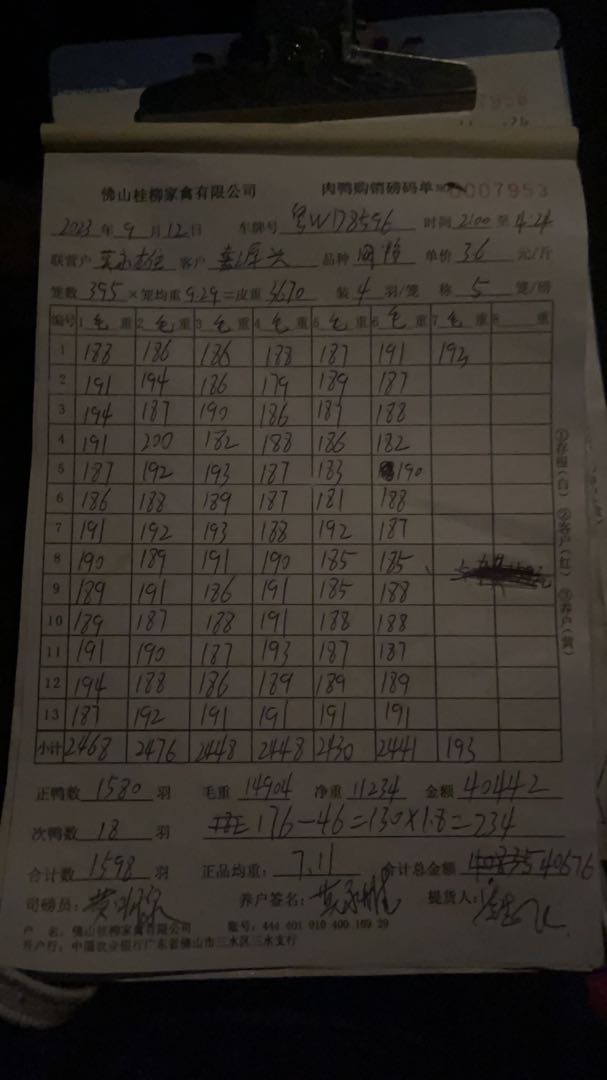 佛山桂柳家禽有限公司 肉鸭购销磅码单 №0007953
2023年9月12日 车牌号 粤W178596 时间 2100至4:24
联营户 客户 品种 单价 3.6 元/斤
笼数 395 ×笼均重 9.29 =皮重 3670 装 4 羽/笼 称 5 笼/磅
编号 1 毛 重 2 毛 重 3 毛 重 4 毛 重 5 毛 重 6 毛 重 7 毛 重 8 重
1 188 186 186 188 187 191 193
2 191 194 186 179 189 187
3 194 187 190 186 189 188
4 191 200 182 188 186 182
5 187 192 193 187 183 190
6 186 188 189 187 181 188
7 191 192 193 188 192 187
8 190 189 191 190 185 185
9 189 191 186 191 185 188
10 189 187 188 191 188 188
11 191 190 187 193 187 187
12 194 188 186 189 189 189
13 187 192 191 191 191 191
小计 2468 2476 2448 2448 2430 2441 193
正鸭数 1580 羽 毛重 14904 净重 11234 金额 40442
次鸭数 18 羽 176-46=130×1.8=234
合计数 1598 羽 正品均重: 7.11 合计总金额 40676
司磅员: 养户签名: 提货人:
户 名: 佛山桂柳家禽有限公司 账号: 444 601 010 400 169 29
开户行: 中国农业银行广东省佛山市三水区三水支行
①存根(白) ②客户(红) ③养户(黄)